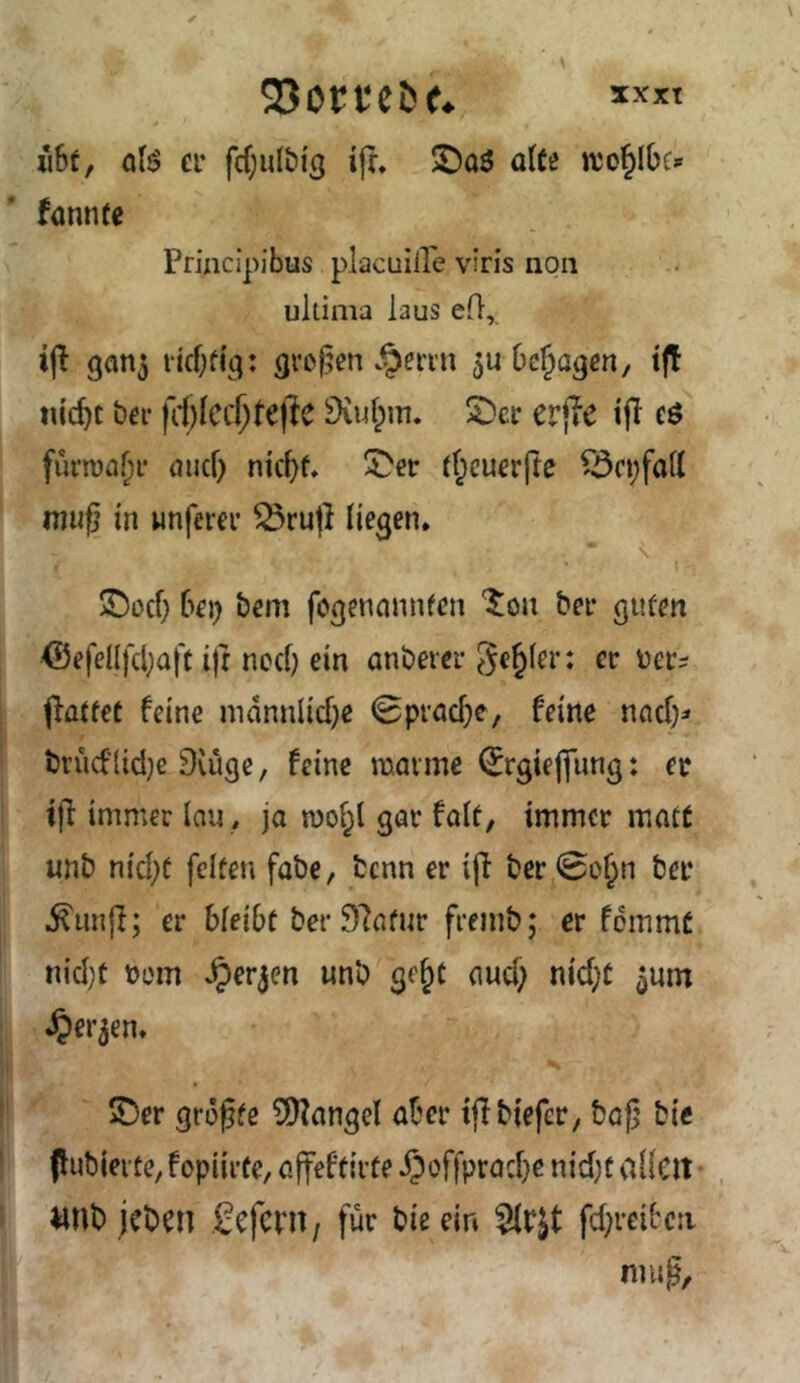 Vorrede. XXXI
übt, als er schuldig ist. Das alte wohlbe-
kannte
Principibus placuisse viris non
ultima laus est,
ist ganz richtig: großen Herrn zu behagen, ist
nicht der schlechteste Ruhm. Der erste ist es
fürwahr auch nicht. Der theuerste Beyfall
muß in unserer Brust liegen.
Doch bey dem sogenannten Ton der guten
Gesellschaft ist noch ein anderer Fehler: er ver-
stattet keine männliche Sprache, keine nach-
drückliche Rüge, keine warme Ergießung: er
ist immer lau, ja wohl gar kalt, immer matt
und nicht selten fade, denn er ist der Sohn der
Kunst; er bleibt der Natur fremd; er kömmt
nicht vom Herzen und geht auch nicht zum
Herzen.
Der größte Mangel aber ist dieser, daß die
studierte, kopiirte, affektirte Hofsprache nicht allen
und jeden Lesern, für die ein Arzt schreiben
muß,